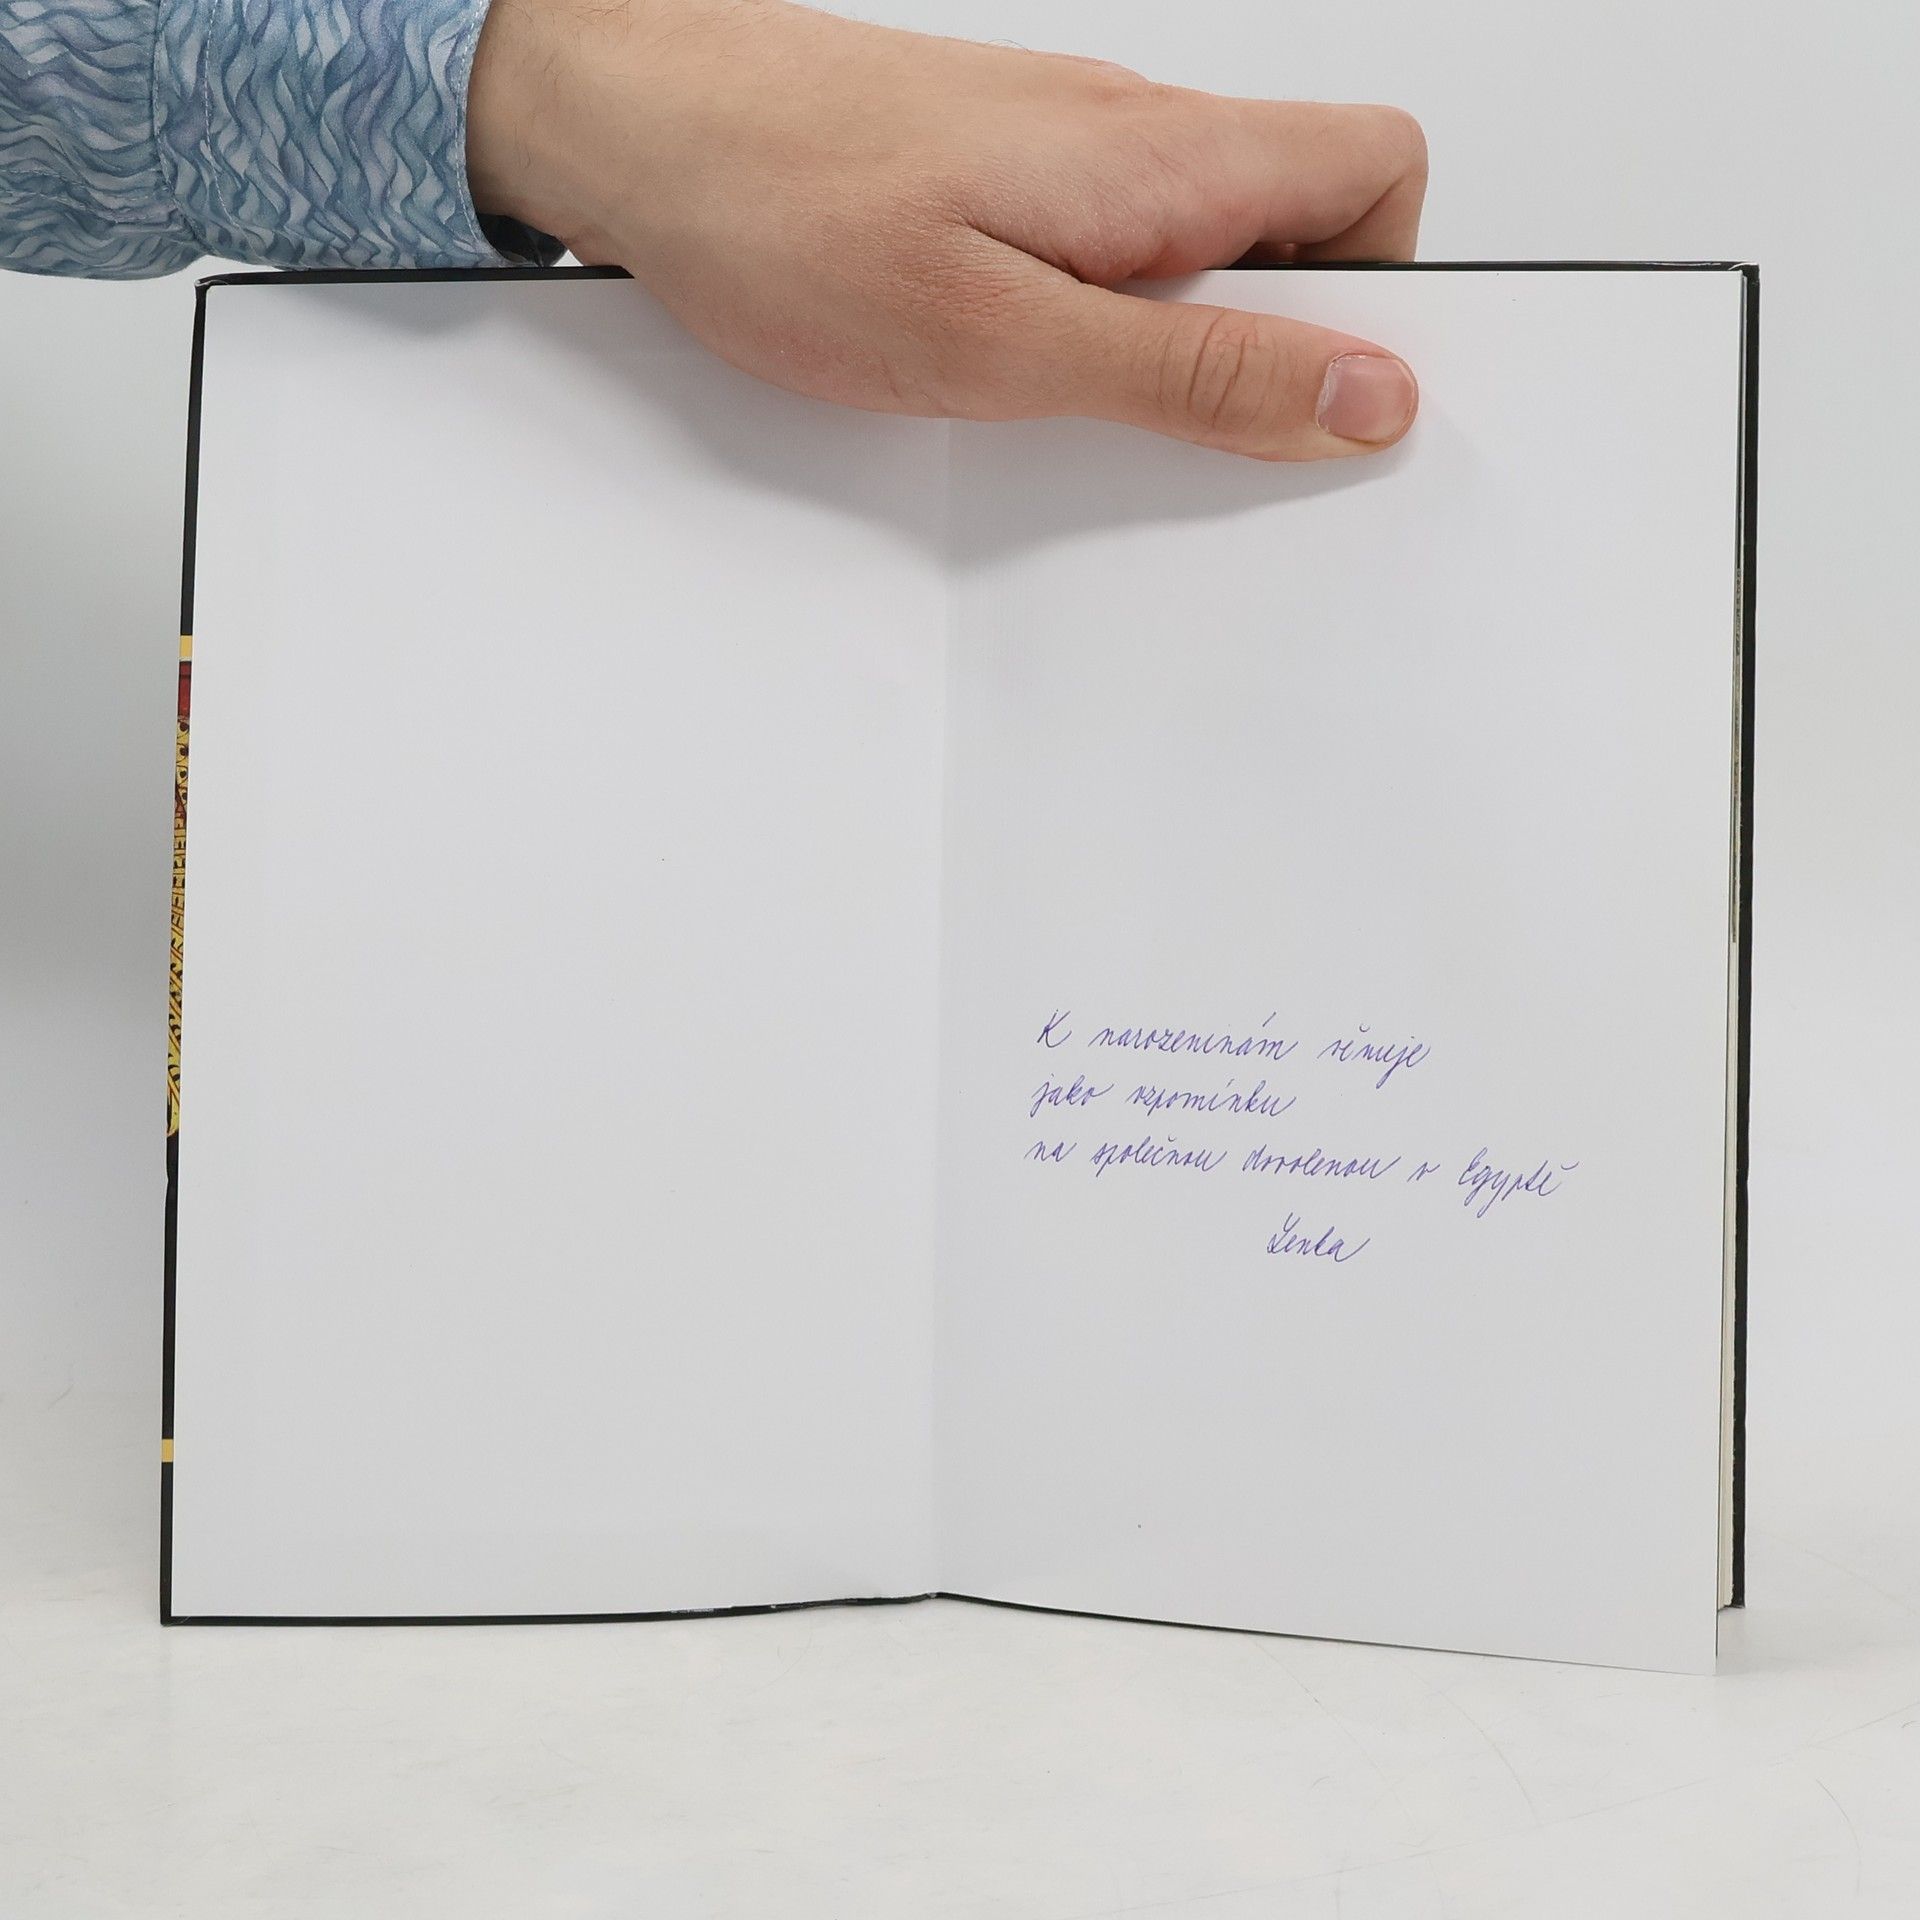 K narozeninám věnuje
jako vzpomínku
na společnou dovolenou v Egyptě
Lenka